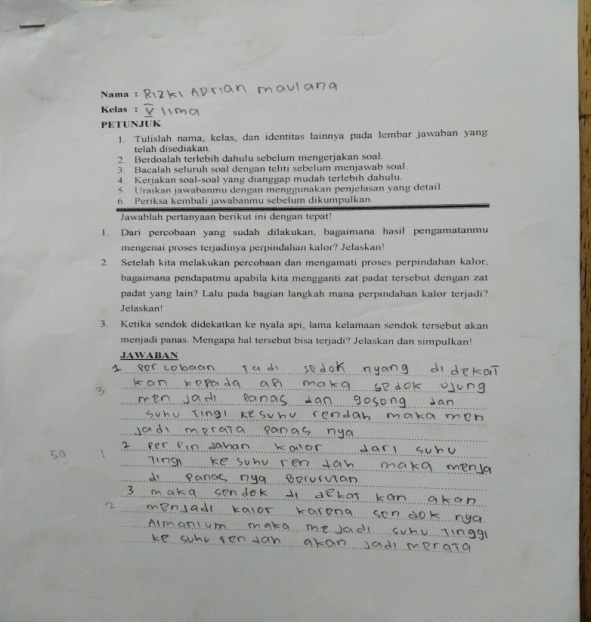 Nama : Rizki Adrian maulana
Kelas : V lima
PETUNJUK
1. Tulislah nama, kelas, dan identitas lainnya pada lembar jawaban yang
telah disediakan.
2. Berdoalah terlebih dahulu sebelum mengerjakan soal.
3. Bacalah seluruh soal dengan teliti sebelum menjawab soal.
4. Kerjakan soal-soal yang dianggap mudah terlebih dahulu.
5. Uraikan jawabanmu dengan menggunakan penjelasan yang detail.
6. Periksa kembali jawabanmu sebelum dikumpulkan
Jawablah pertanyaan berikut ini dengan tepat!
1. Dari percobaan yang sudah dilakukan, bagaimana hasil pengamatanmu
mengenai proses terjadinya perpindahan kalor? Jelaskan!
2. Setelah kita melakukan percobaan dan mengamati proses perpindahan kalor,
bagaimana pendapatmu apabila kita mengganti zat padat tersebut dengan zat
padat yang lain? Lalu pada bagian langkah mana perpindahan kalor terjadi?
Jelaskan!
3. Ketika sendok didekatkan ke nyala api, lama kelamaan sendok tersebut akan
menjadi panas. Mengapa hal tersebut bisa terjadi? Jelaskan dan simpulkan!
JAWABAN
1 percobaan Tadi sedok nyang di dekat
kan kepada api maka sedok ujung
3
men jadi panas dan gosong dan
suhu Tingi kesuhu rendah maka men
jadi merata panas nya
2 per pin dahan kalor dari suhu
50 1
Tingi ke suhu ren dah maka menja
di panas nya Berurutan
3 maka sendok di dekat kan akan
2
menjadi kalor karena sendok nya
Almanium maka me jadi suhu Tinggi
ke suhu ren dah akan jadi merata